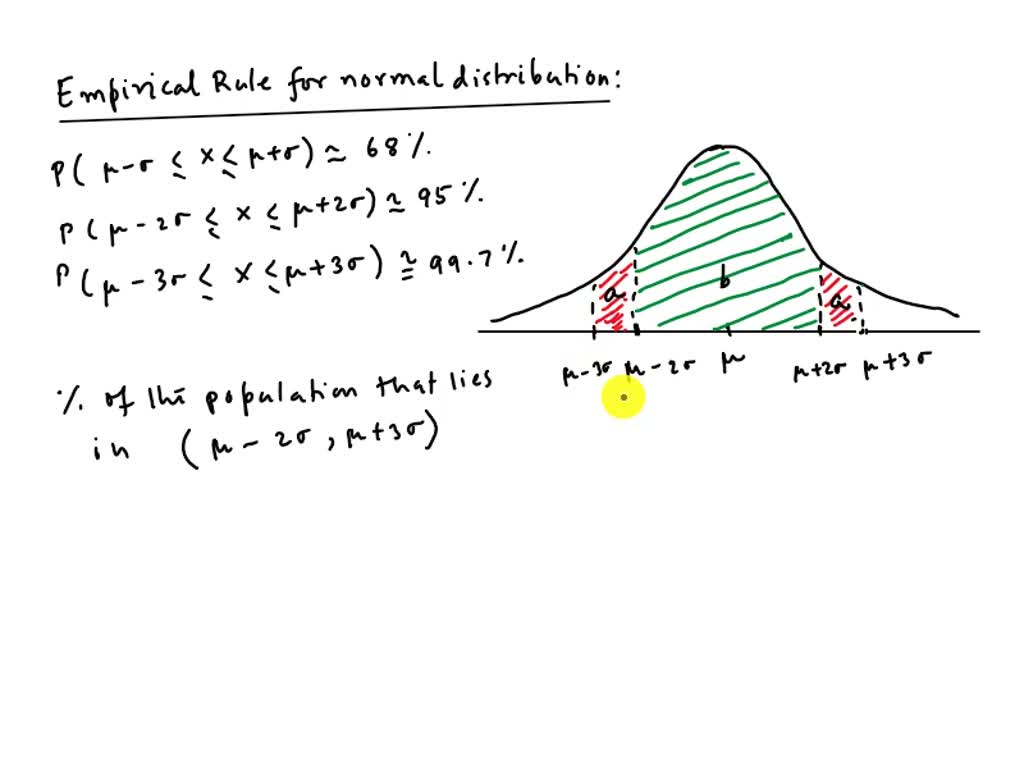 Empirical Rule for normal distribution:
P( μ-σ ≤ x ≤ μ+σ) ≃ 68%.
P( μ - 2σ ≤ x ≤ μ+2σ) ≃ 95%.
P( μ - 3σ ≤ x ≤ μ+3σ) ≅ 99.7%.
a b a
μ-3σ μ-2σ μ μ+2σ μ+3σ
% of the population that lies
in (μ - 2σ, μ+3σ)